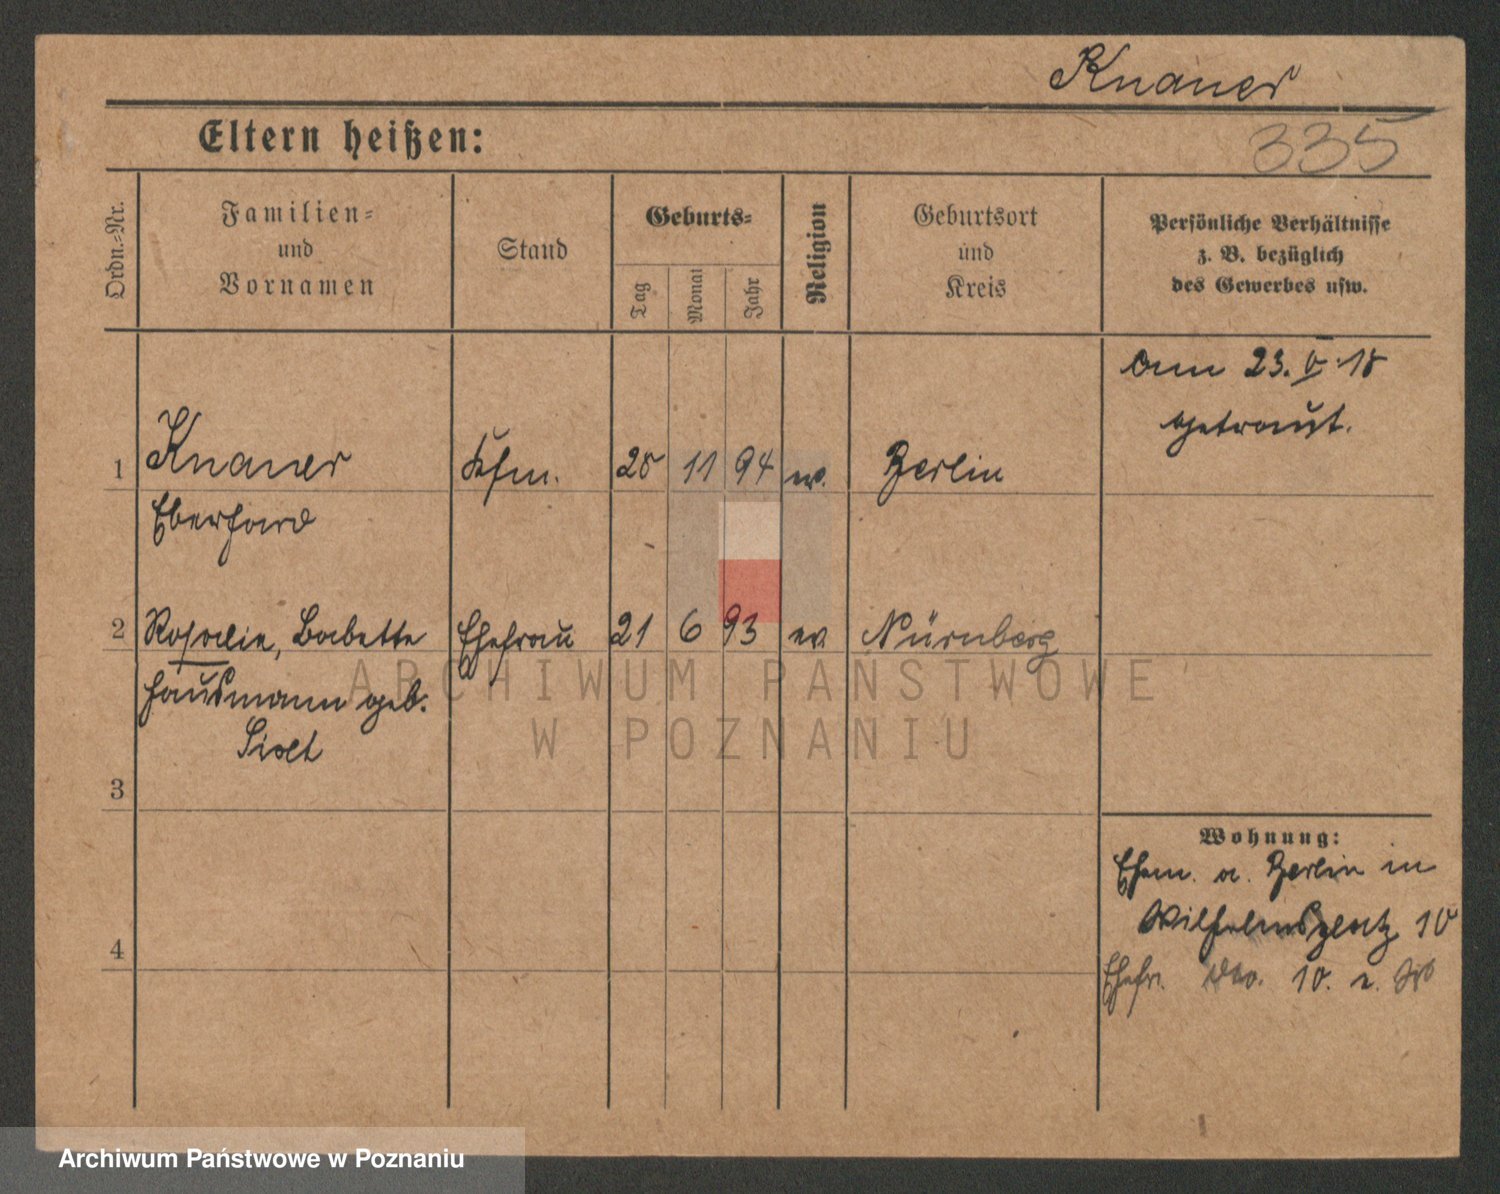 Knauer
Eltern heißen:
335
Ordn.-Nr.
Familien-
und
Vornamen
Stand
Geburts-
Tag
Monat
Jahr
Religion
Geburtsort
und
Kreis
Persönliche Verhältnisse
z. B. bezüglich
des Gewerbes usw.
am 23. V. 18
getraut.
1 Knauer Kfm. 11 94 ev. Berlin
Eberhard
2 Rosalie, Babette Ehefrau 21 6 93 ev. Nürnberg
Hausmann geb.
3
4
Wohnung:
Ehem. a. Berlin in
Wilhelmsplatz 10
Ehefr. dto. 10.
ARCHIWUM PAŃSTWOWE
W POZNANIU
Archiwum Państwowe w Poznaniu